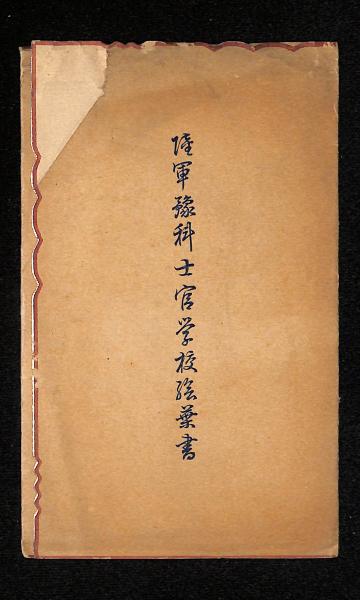 陸軍豫科士官学校絵葉書